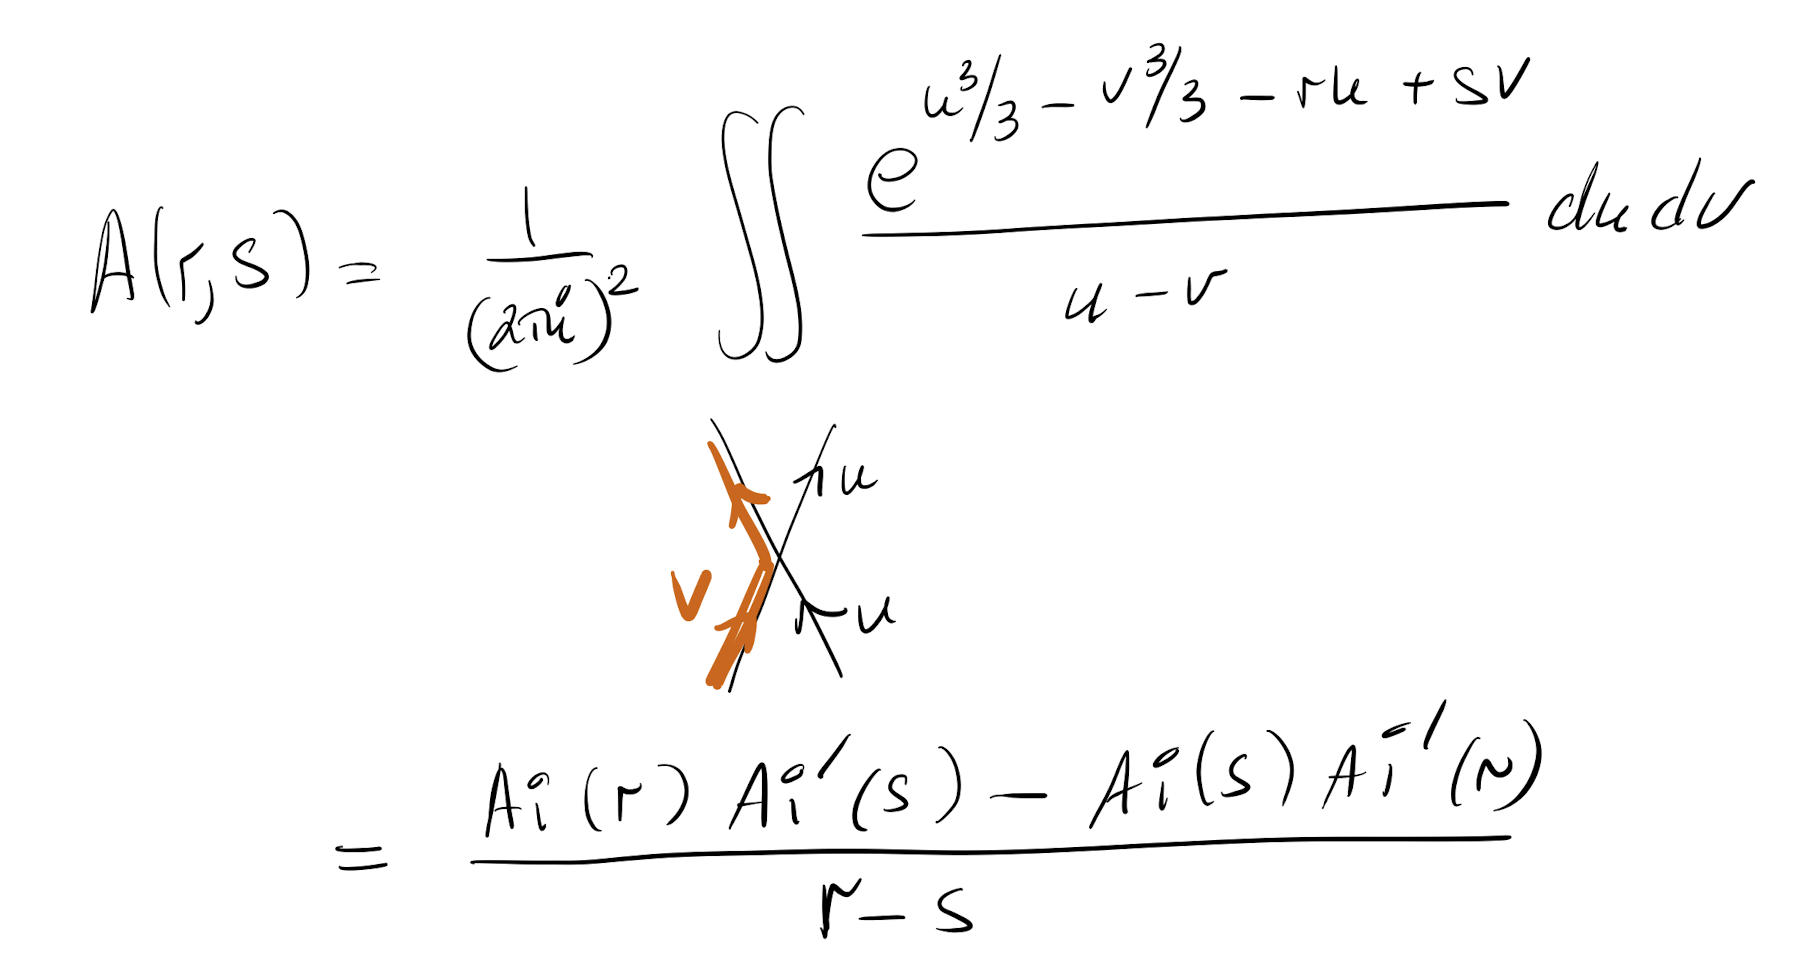 A(r,s) = 1/(2πi)² ∬ e^{u³/3 − v³/3 − ru + sv} / (u − v) du dv
u
v
u
= (Ai(r) Ai′(s) − Ai(s) Ai′(r)) / (r − s)